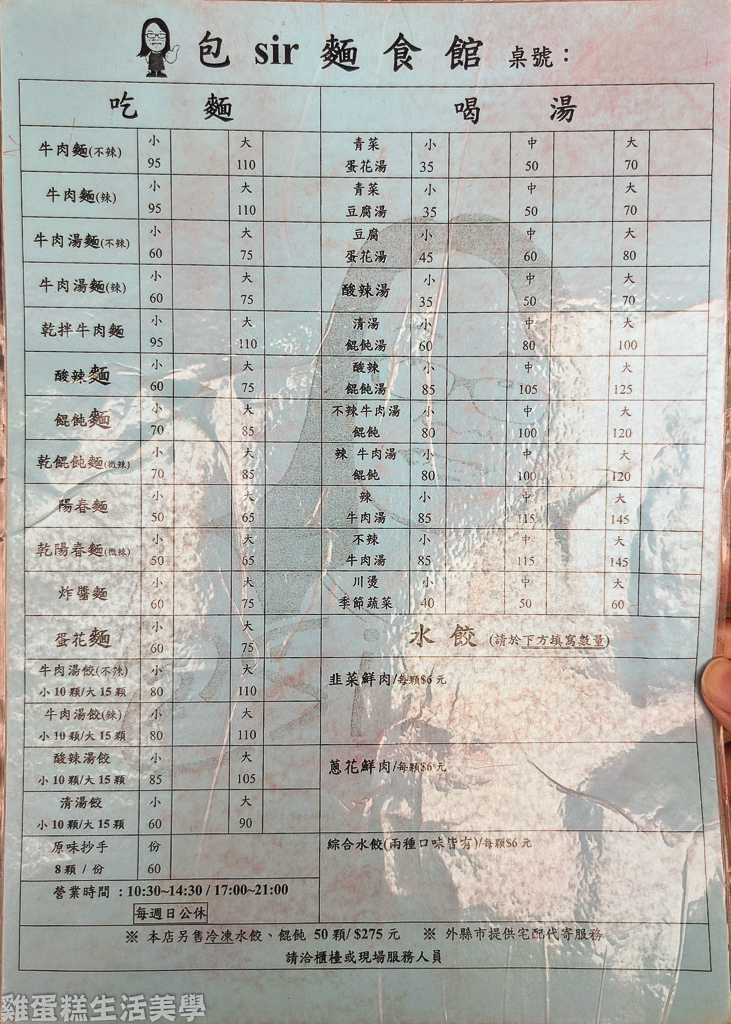 包 sir 麵食館 桌號：
吃 麵
牛肉麵(不辣) 小 95 大 110
牛肉麵(辣) 小 95 大 110
牛肉湯麵(不辣) 小 60 大 75
牛肉湯麵(辣) 小 60 大 75
乾拌牛肉麵 小 95 大 110
酸辣麵 小 60 大 75
餛飩麵 小 70 大 85
乾餛飩麵(微辣) 小 70 大 85
陽春麵 小 50 大 65
乾陽春麵(微辣) 小 50 大 65
炸醬麵 小 60 大 75
蛋花麵 小 60 大 75
牛肉湯餃(不辣) 小 大
小 10 顆/大 15 顆 80 110
牛肉湯餃(辣) 小 大
小 10 顆/大 15 顆 80 110
酸辣湯餃 小 大
小 10 顆/大 15 顆 85 105
清湯餃 小 大
小 10 顆/大 15 顆 60 90
原味抄手 份
8 顆 / 份 60
營業時間 : 10:30~14:30 / 17:00~21:00
每週日公休
喝 湯
青菜 小 中 大
蛋花湯 35 50 70
青菜 小 中 大
豆腐湯 35 50 70
豆腐 小 中 大
蛋花湯 45 60 80
酸辣湯 小 35 中 50 大 70
清湯 小 中 大
餛飩湯 60 80 100
酸辣 小 中 大
餛飩湯 85 105 125
不辣 牛肉湯 小 中 大
餛飩 80 100 120
辣 牛肉湯 小 中 大
餛飩 80 100 120
辣 小 中 大
牛肉湯 85 115 145
不辣 小 中 大
牛肉湯 85 115 145
川燙 小 中 大
季節蔬菜 40 50 60
水 餃 (請於下方填寫數量)
韭菜鮮肉/每顆$6 元
蔥花鮮肉/每顆$6 元
綜合水餃(兩種口味皆有)/每顆$6 元
※ 本店另售冷凍水餃、餛飩 50 顆/ $275 元 ※ 外縣市提供宅配代寄服務
請洽櫃檯或現場服務人員
雞蛋糕生活美學